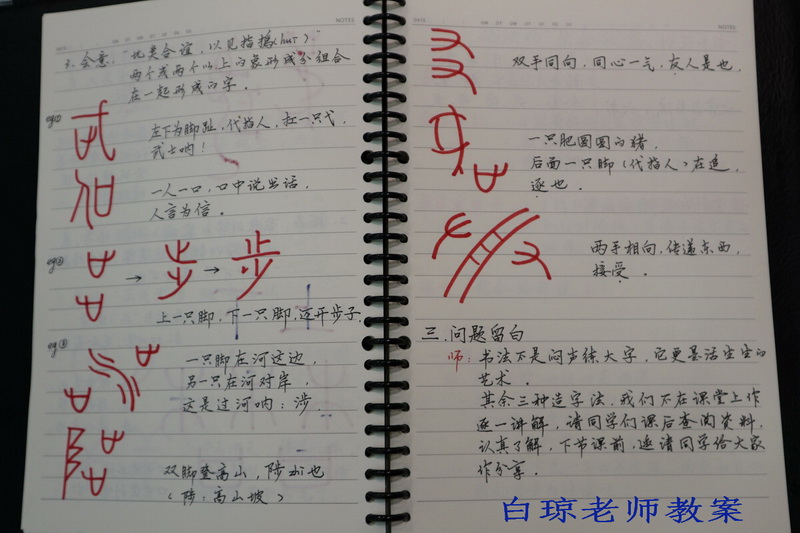 NOTES
3. 会意："比类合谊，以见指撝(huī)."
两个或两个以上的象形或成分组合
在一起形成的字.
eg①
左下为脚趾，代指人，扛一只弋，
武士呐！
一人一口，口中说出话，
人言为信.
eg②
→ 步 → 步
上一只脚，下一只脚，迈开步子.
eg③
一只脚在河这边，
另一只在河对岸，
这是过河呐：涉.
双脚登高山，陟zhì也
（陟：高山坡）
NOTES
双手同向，同心一气，友人是也.
一只肥圆圆的猪，
后面一只脚（代指人）在追，
逐也.
两手相向，传递东西，
接受.
三.问题留白
师：书法不是闷头练大字，它更是活生生的
艺术.
其余三种造字法，我们不在课堂上作
逐一讲解，请同学们课后查阅资料，
认真了解，下节课前，邀请同学给大家
作分享.
白琼老师教案